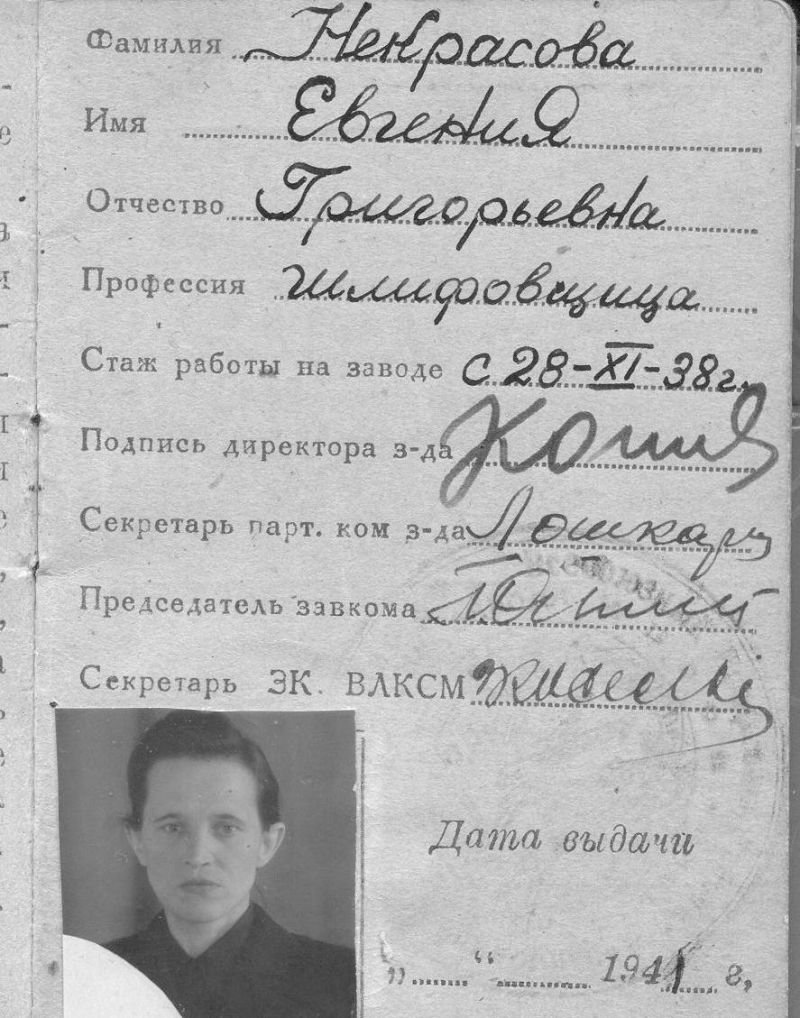 Фамилия Некрасова
Имя Евгения
Отчество Григорьевна
Профессия Шлифовщица
Стаж работы на заводе с 28-XI-38г.
Подпись директора з-да
Секретарь парт. ком з-да Лошкарц
Председатель завкома
Секретарь ЗК. ВЛКСМ
Дата выдачи
„ “ 1941 г.